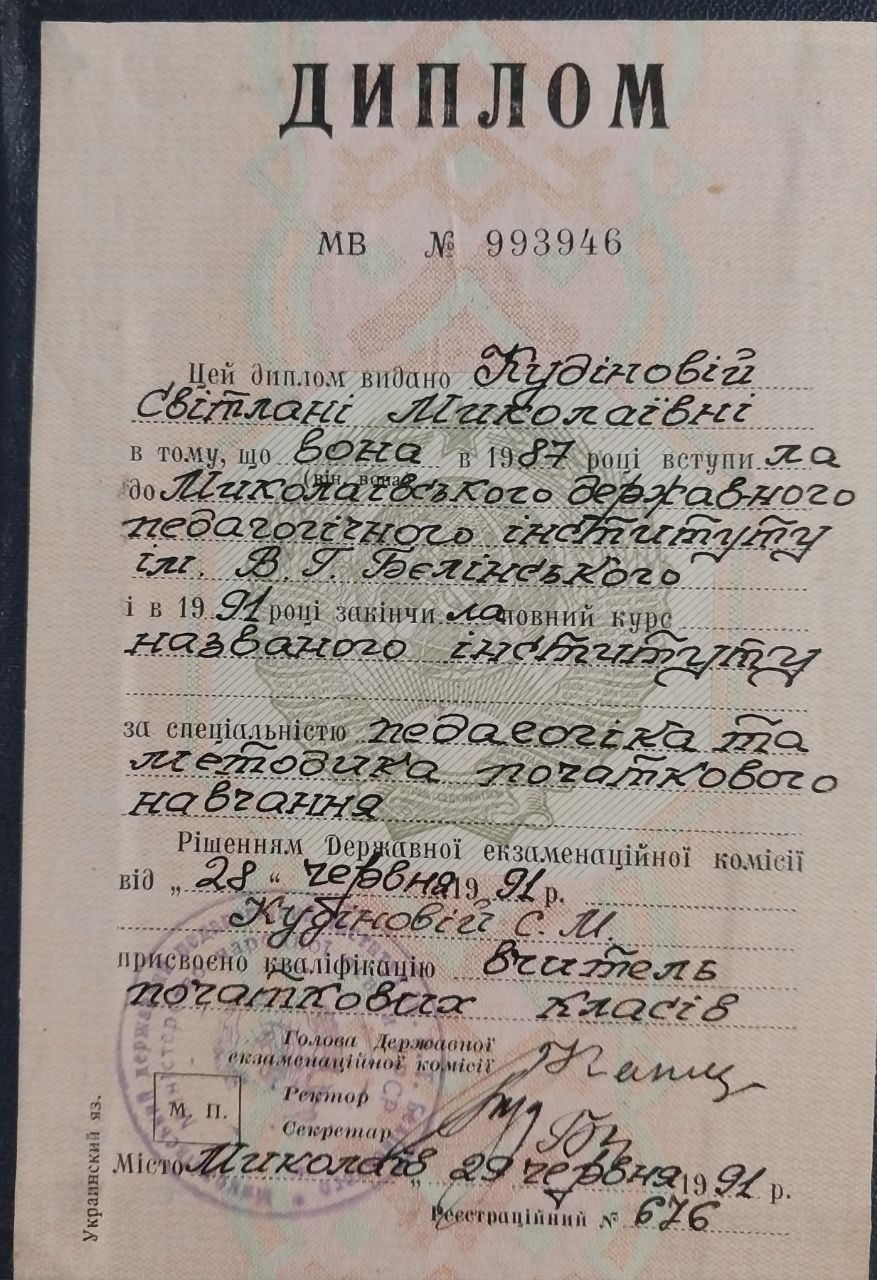 ДИПЛОМ
МВ № 993946
Цей диплом видано Кудіновій
Світлані Миколаївні
в тому, що вона в 1987 році вступила
(він, вона)
до Миколаївського державного
педагогічного інституту
ім. В. Г. Бєлінського
і в 1991 році закінчила повний курс
названого інституту
за спеціальністю педагогіка та
методика початкового
навчання
Рішенням Державної екзаменаційної комісії
від „28“ червня 1991 р.
Кудіновій С. М.
присвоєно кваліфікацію вчитель
початкових класів
Голова Державної
екзаменаційної комісії
Ректор
М. П.
Секретар
Місто Миколаїв „29 червня 1991 р.
Реєстраційний № 676
Украинский яз.